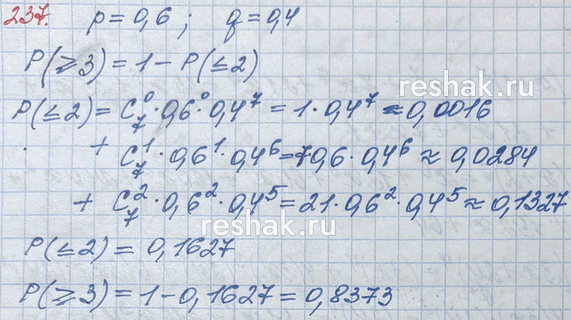 237. p = 0,6; q = 0,4
P(≥3) = 1 - P(≤2)
reshak.ru
P(≤2) = C₇⁰·0,6⁰·0,4⁷ = 1·0,4⁷ ≈ 0,0016
+ C₇¹·0,6¹·0,4⁶ = 7·0,6·0,4⁶ ≈ 0,0284
+ C₇²·0,6²·0,4⁵ = 21·0,6²·0,4⁵ ≈ 0,1327
reshak.ru
P(≤2) = 0,1627
P(≥3) = 1 - 0,1627 = 0,8373